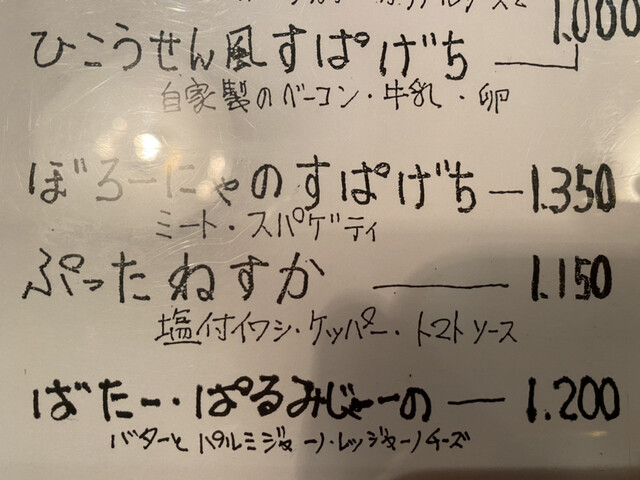 1.000
ひこうせん風すぱげち
自家製のベーコン・牛乳・卵
ぼろーにゃのすぱげち ー 1.350
ミート・スパゲティ
ぷったねすか ー 1.150
塩付イワシ・ケッパー・トマトソース
ばたー・ぱるみじゃーの ー 1.200
バターと パルミジャーノ・レッジャーノチーズ